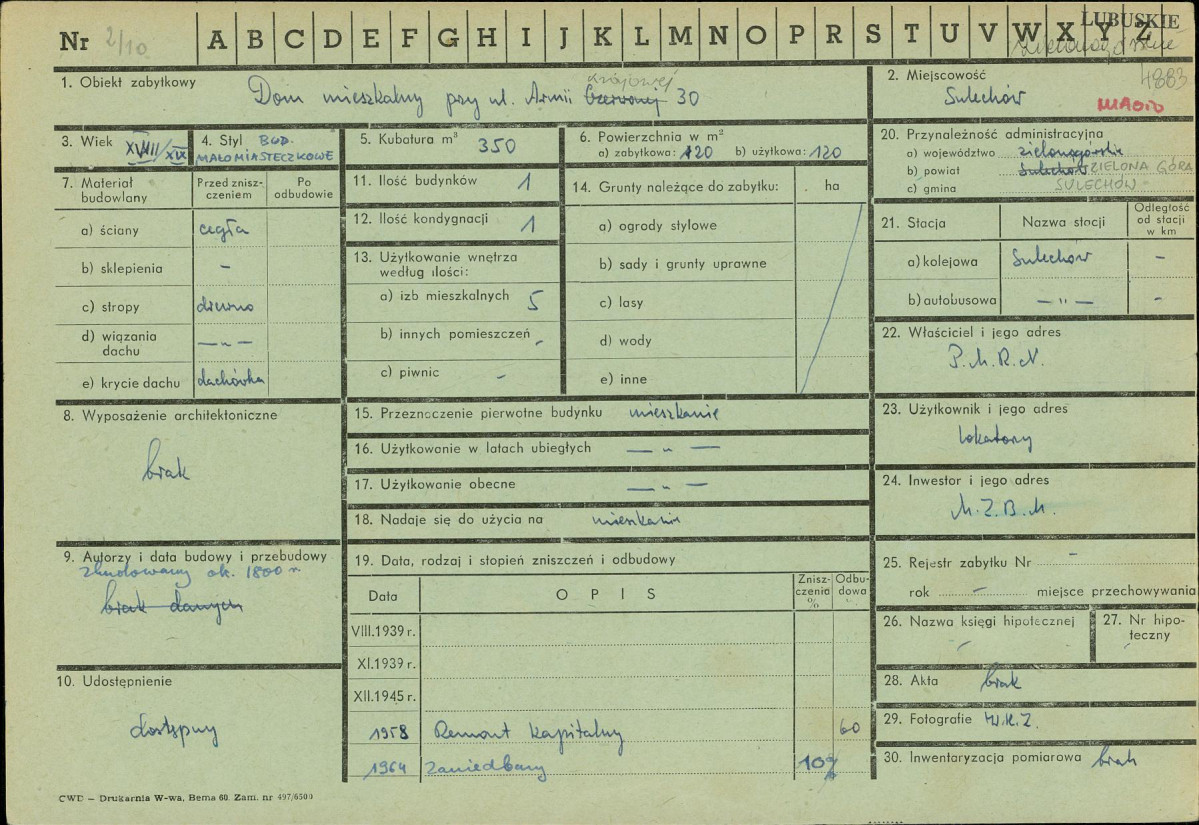 Nr 2/10 A B C D E F G H I J K L M N O P R S T U V W X Y Z LUBUSKIE
zielonogórskie
1. Obiekt zabytkowy
Dom mieszkalny przy ul. Armii Czerwonej Krajowej 30
2. Miejscowość 4883
Sulechów MIASTO
3. Wiek XVIII/XIX
4. Styl BUD. MAŁOMIASTECZKOWE
5. Kubatura m³ 350
6. Powierzchnia w m²
a) zabytkowa: 120 b) użytkowa: 120
20. Przynależność administracyjna
a) województwo zielonogórskie
b) powiat Sulechów ZIELONA GÓRA
c) gmina SULECHÓW
7. Materiał budowlany
Przed zniszczeniem
Po odbudowie
a) ściany cegła
b) sklepienia –
c) stropy drewno
d) wiązania dachu — " —
e) krycie dachu dachówka
11. Ilość budynków 1
12. Ilość kondygnacji 1
13. Użytkowanie wnętrza według ilości:
a) izb mieszkalnych 5
b) innych pomieszczeń -
c) piwnic –
14. Grunty należące do zabytku: ha
a) ogrody stylowe
b) sady i grunty uprawne
c) lasy
d) wody
e) inne
21. Stacja
Nazwa stacji
Odległość od stacji w km
a) kolejowa Sulechów –
b) autobusowa — " — -
22. Właściciel i jego adres
P.M.R.N.
8. Wyposażenie architektoniczne
brak
15. Przeznaczenie pierwotne budynku mieszkanie
16. Użytkowanie w latach ubiegłych — " —
17. Użytkowanie obecne — " —
18. Nadaje się do użycia na mieszkanie
23. Użytkownik i jego adres
lokatorzy
24. Inwestor i jego adres
M.Z.B.M.
9. Autorzy i data budowy i przebudowy
zbudowany ok. 1800 r.
brak danych
19. Data, rodzaj i stopień zniszczeń i odbudowy
Data
OPIS
Zniszczenia %
Odbudowa
VIII.1939 r.
XI.1939 r.
XII.1945 r.
1958 Remont kapitalny 60
1964 zaniedbany 10%
25. Rejestr zabytku Nr –
rok – miejsce przechowywania
26. Nazwa księgi hipotecznej -
27. Nr hipoteczny
10. Udostępnienie
dostępny
28. Akta brak
29. Fotografie W.K.Z.
30. Inwentaryzacja pomiarowa brak
CWD – Drukarnia W-wa, Bema 60. Zam. nr 497/6500